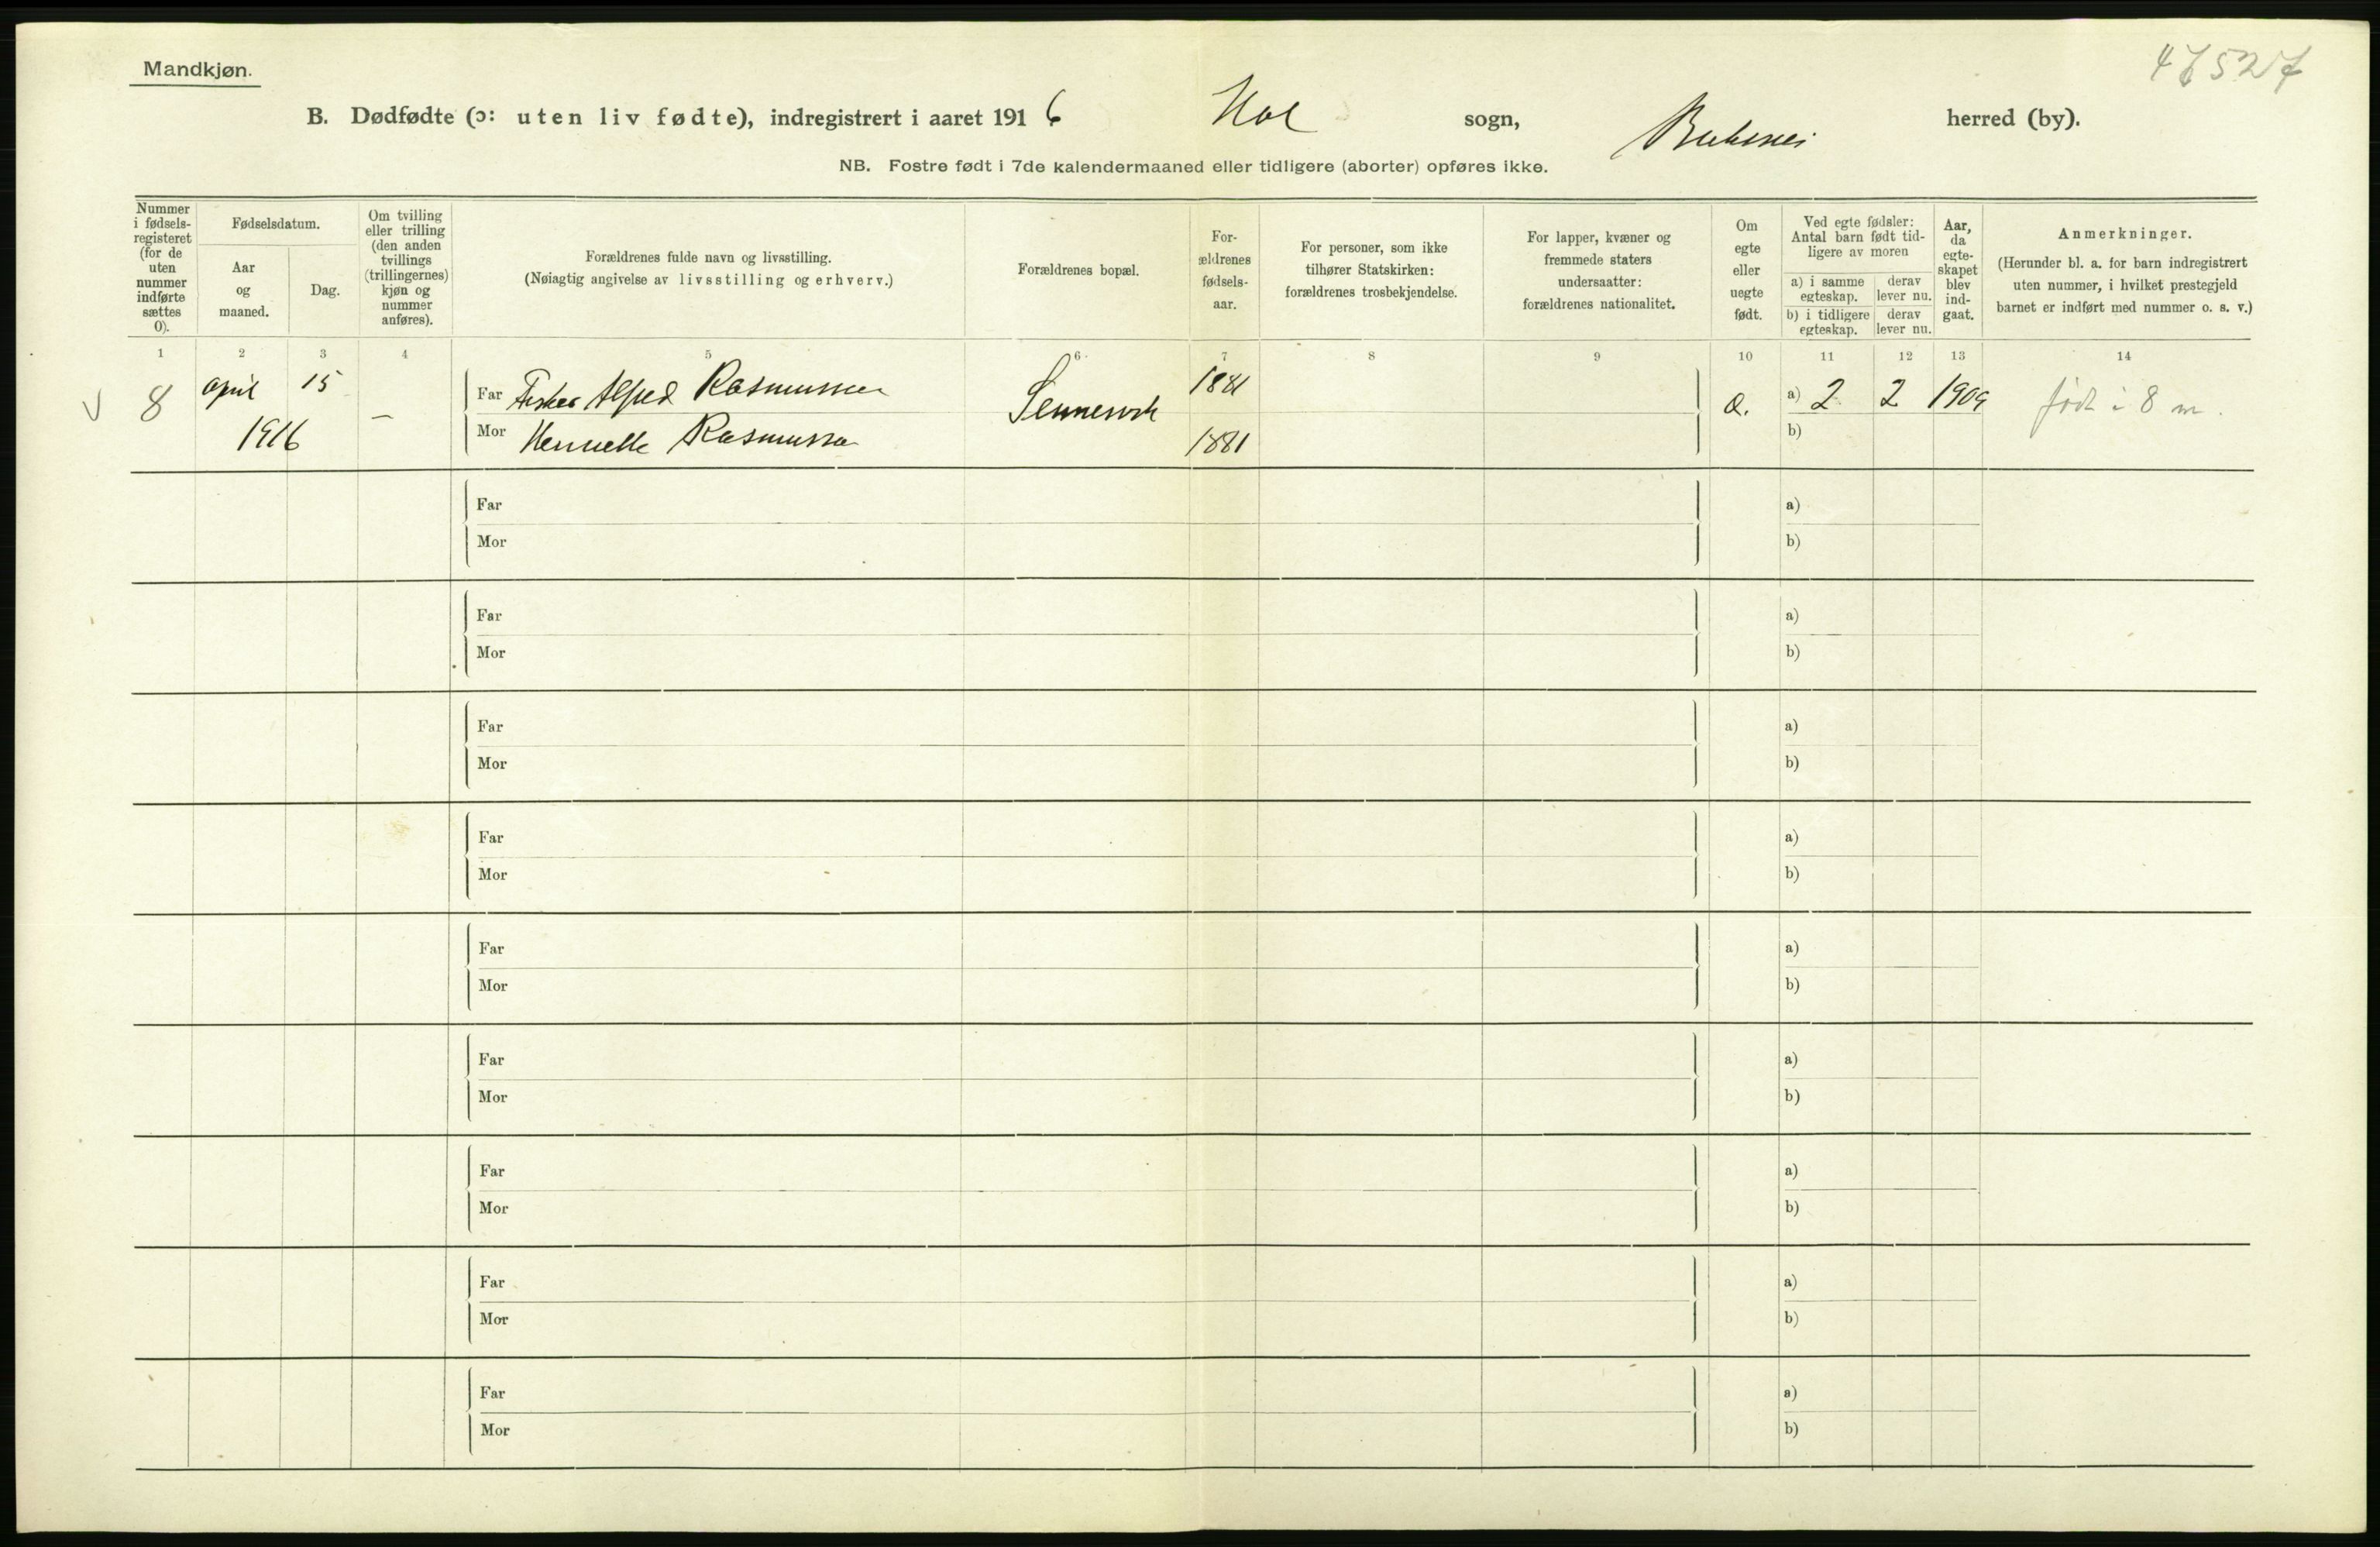 Mandkjøn.
B. Dødfødte (ɔ: uten liv fødte), indregistrert i aaret 1916 Hol sogn, Buksnes herred (by).
NB. Fostre født i 7de kalendermaaned eller tidligere (aborter) opføres ikke.
Nummer i fødsels-registeret (for de uten nummer indførte sættes 0).
Fødselsdatum.
Aar og maaned.
Dag.
Om tvilling eller trilling (den anden tvillings (trillingernes) kjøn og nummer anføres).
Forældrenes fulde navn og livsstilling.
(Nøiagtig angivelse av livsstilling og erhverv.)
Forældrenes bopæl.
For-ældrenes fødsels-aar.
For personer, som ikke tilhører Statskirken: forældrenes trosbekjendelse.
For lapper, kvæner og fremmede staters undersaatter: forældrenes nationalitet.
Om egte eller uegte født.
Ved egte fødsler: Antal barn født tid-ligere av moren
a) i samme egteskap.
derav lever nu.
b) i tidligere egteskap.
derav lever nu.
Aar, da egte-skapet blev ind-gaat.
Anmerkninger.
(Herunder bl. a. for barn indregistrert uten nummer, i hvilket prestegjeld barnet er indført med nummer o. s. v.)
1 2 3 4 5 6 7 8 9 10 11 12 13 14
8 april 15 — Far Fisker Alfred Rasmussen 1881 a) 2 2 1909 født i 8 m.
1916 Mor Rasmussen 1881 b)
Far a)
Mor b)
Far a)
Mor b)
Far a)
Mor b)
Far a)
Mor b)
Far a)
Mor b)
Far a)
Mor b)
Far a)
Mor b)
Far a)
Mor b)
Far a)
Mor b)